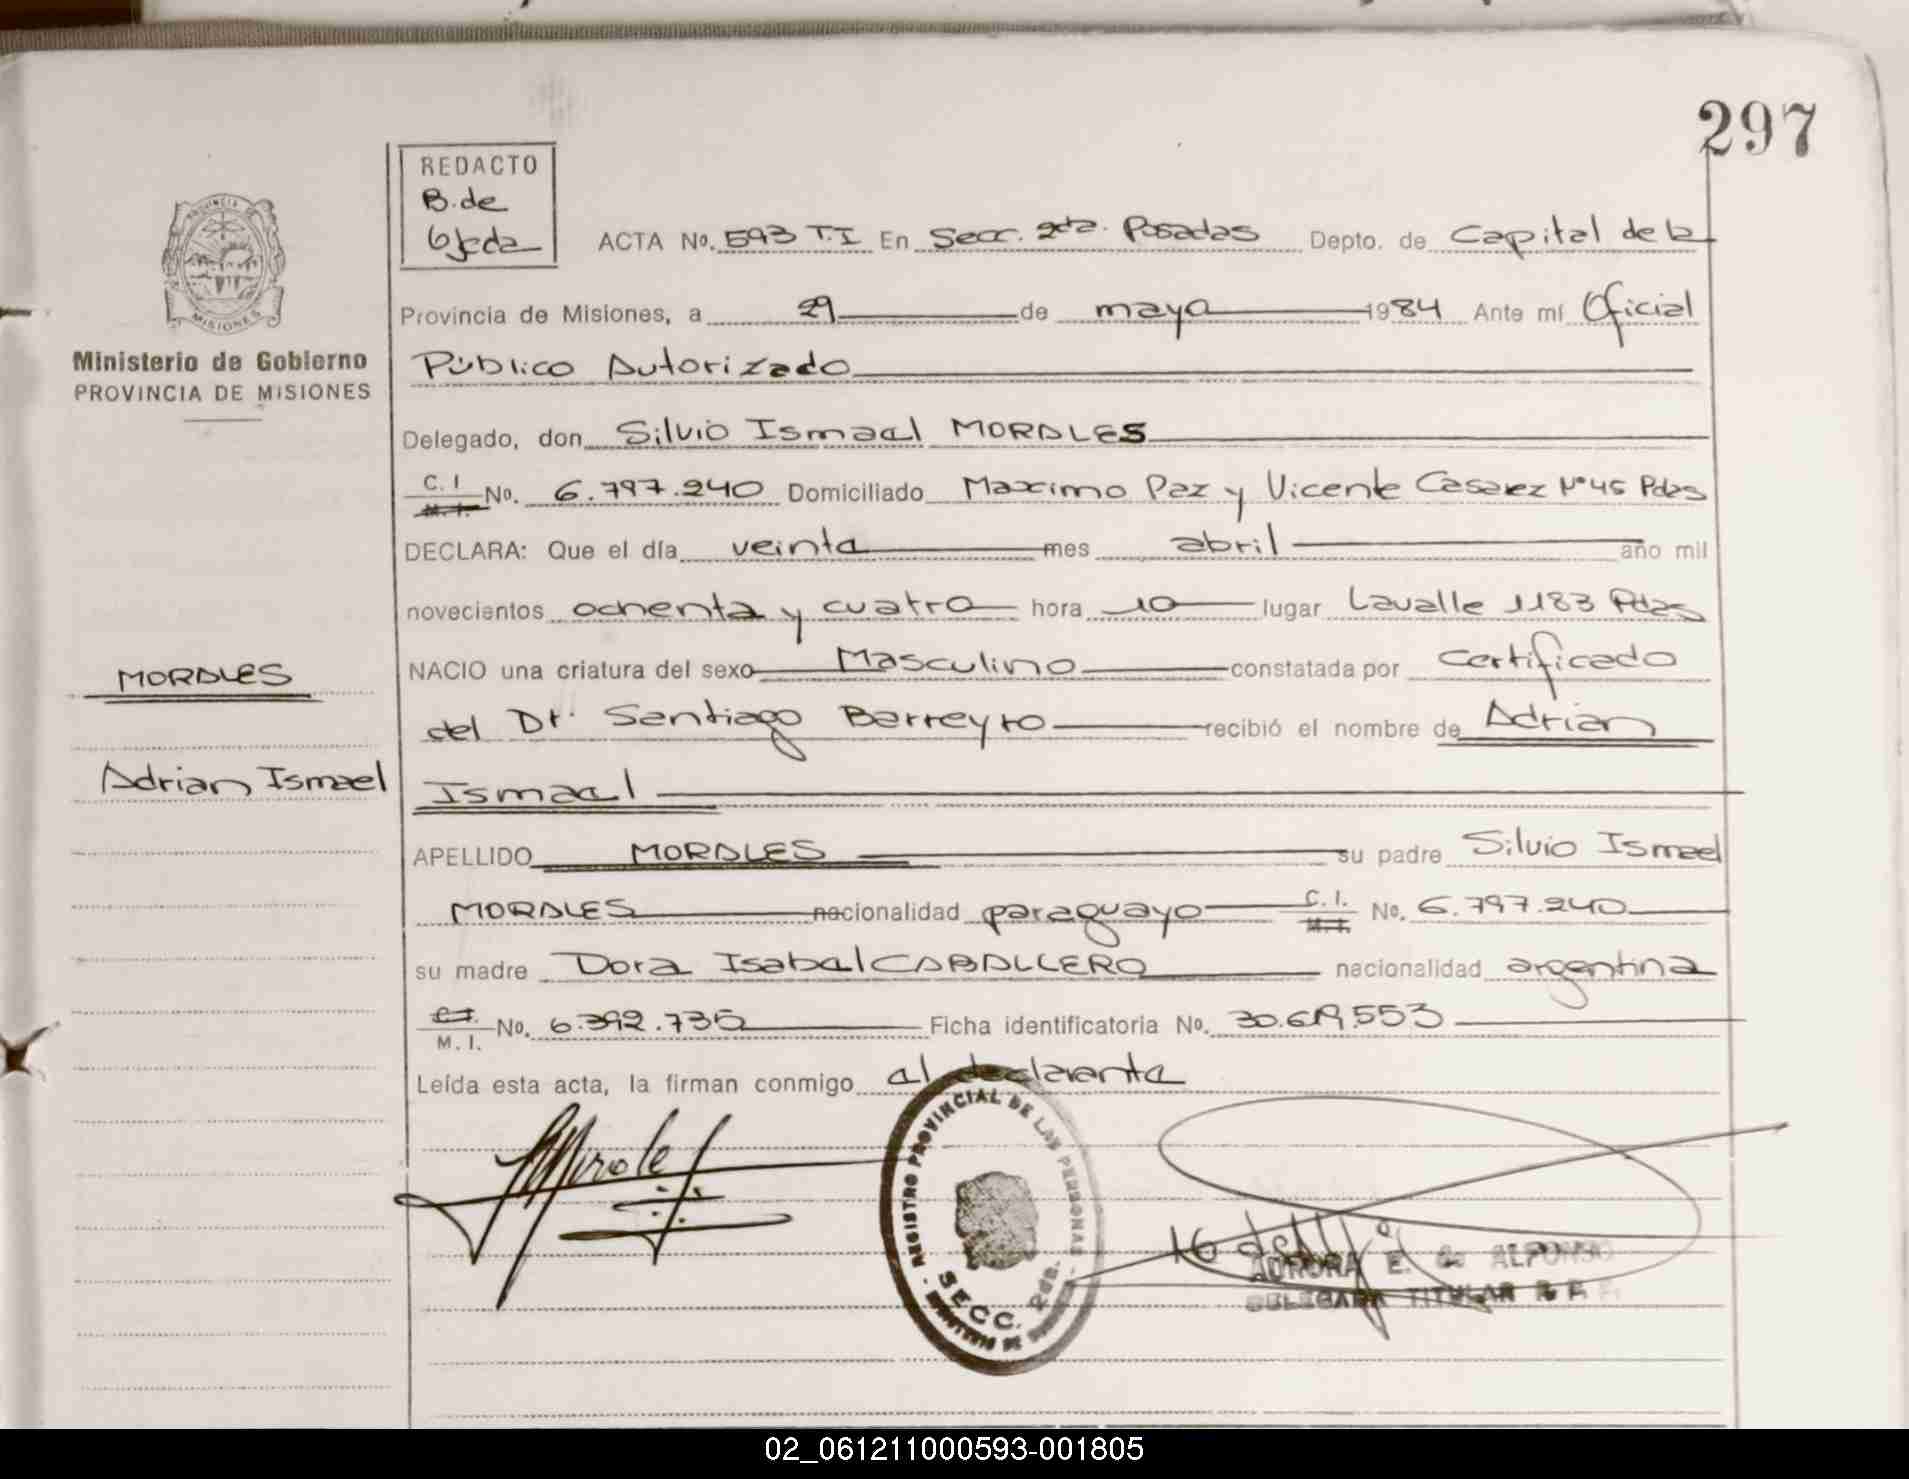 297
REDACTO
B. de
Ojeda
ACTA No. 593 T.I En Secc. 2da. Posadas Depto. de Capital de la
Provincia de Misiones, a 29 de mayo 1984 Ante mí Oficial
Público Autorizado
Delegado, don Silvio Ismael MORALES
C. I
M. I. No. 6.797.240 Domiciliado Maximo Paz y Vicente Casarez Nº 45 Pdas
DECLARA: Que el día veinte mes abril año mil
novecientos ochenta y cuatro hora 10 lugar Lavalle 1183 Pdas
NACIO una criatura del sexo Masculino constatada por Certificado
del Dr. Santiago Barreyro recibió el nombre de Adrian
Ismael
APELLIDO MORALES su padre Silvio Ismael
MORALES nacionalidad paraguayo C. I.
M. I. No. 6.797.240
su madre Dora Isabel CABALLERO nacionalidad argentina
C. I.
M. I. No. 6.392.735 Ficha identificatoria No. 30.619.553
Leída esta acta, la firman conmigo el declarante
PROVINCIA DE
MISIONES
Ministerio de Gobierno
PROVINCIA DE MISIONES
MORALES
Adrian Ismael
REGISTRO PROVINCIAL DE LAS PERSONAS
SECC. 2da.
AURORA E. de ALFONSO
DELEGADA TITULAR R. P.
02_061211000593-001805